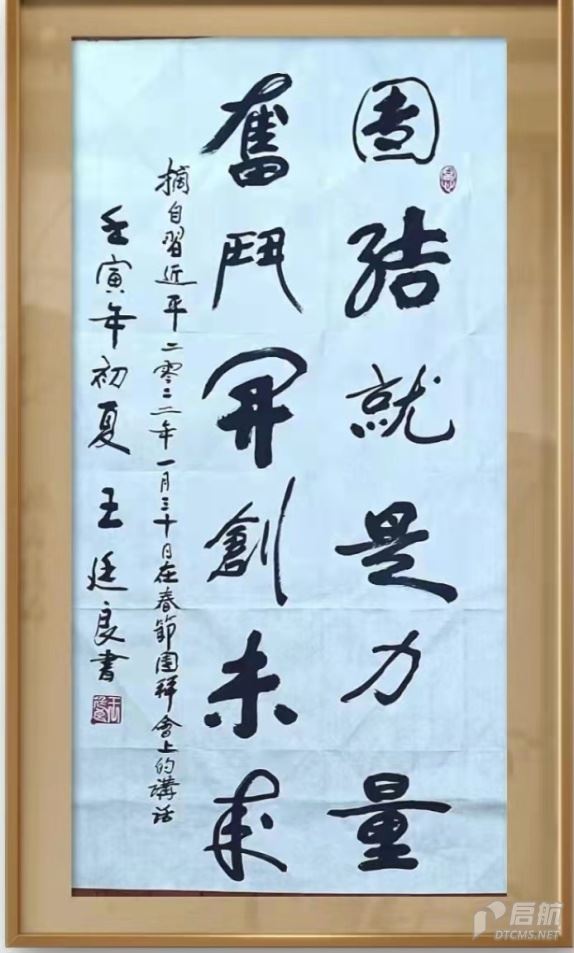 團結就是力量
奮鬥開創未來
摘自習近平二零二二年一月三十日在春節團拜會上的講話
壬寅年初夏 王廷良書
启航
DTCMS.NET